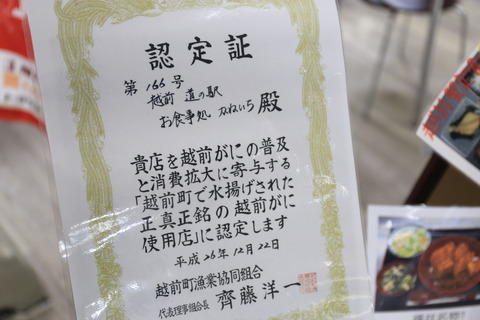 認定証
第166号
越前 道の駅
お食事処 かねいち 殿
貴店を越前がにの普及
と消費拡大に寄与する
「越前町で水揚げされた
正真正銘の越前がに
使用店」に認定します
平成26年12月22日
越前町漁業協同組合
代表理事組合長 齊藤洋一